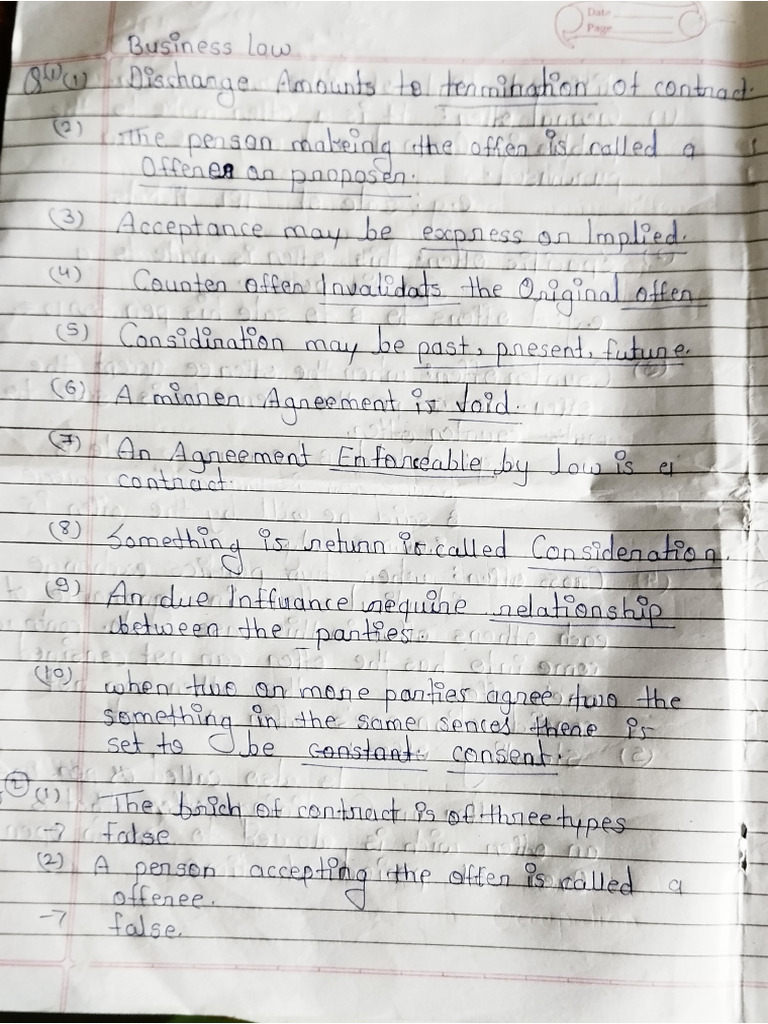 Date
Page
Business law
Q(1) (1) Discharge Amounts to termination of contract.
(2) The person makeing the offer is called a
Offerer or proposer.
(3) Acceptance may be excpress or Implied.
(4) Counter offer Invalidats the Original offer
(5) Considiration may be past, present, future.
(6) A minner Agreement is Void.
(7) An Agreement Enforceable by low is a
contract.
(8) Something is return is called Consideration.
(9) An due Inffuance require relationship
between the parties.
(10) when two or more parties agree two the
something in the same sences there is
set to be constant. consent.
2 (1) The brich of contract is of three types
→ false
(2) A person accepting the offer is called a
offeree.
→ false.